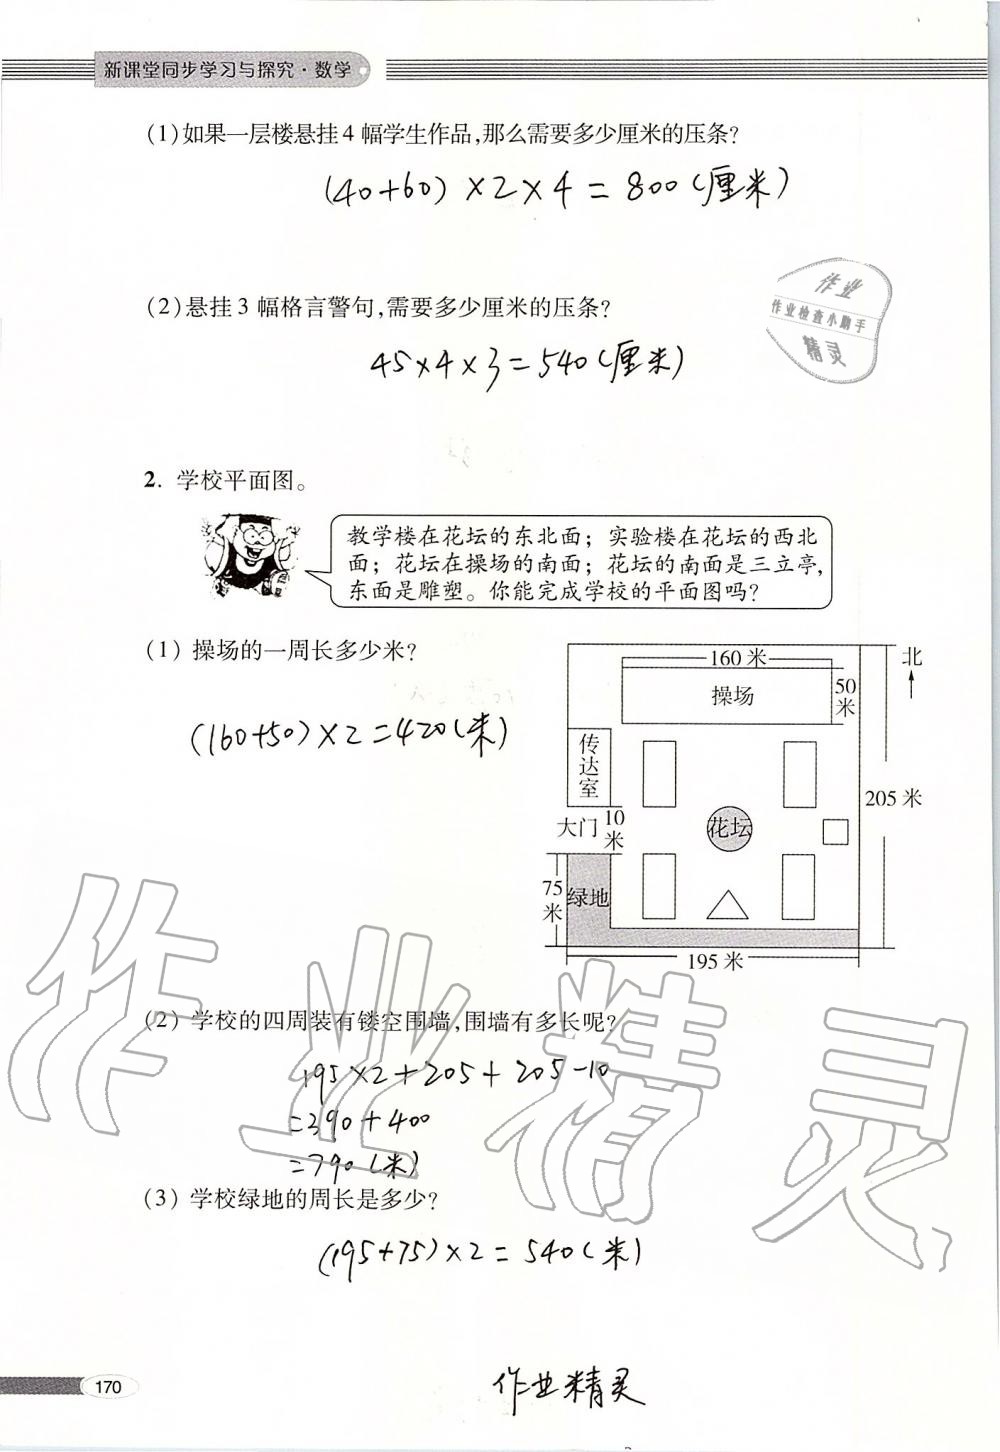 新课堂同步学习与探究·数学
(1)如果一层楼悬挂4幅学生作品,那么需要多少厘米的压条?
(40+60)×2×4=800(厘米)
(2)悬挂3幅格言警句,需要多少厘米的压条?
45×4×3=540(厘米)
作业
作业检查小助手
精灵
2. 学校平面图。
教学楼在花坛的东北面；实验楼在花坛的西北
面；花坛在操场的南面；花坛的南面是三立亭,
东面是雕塑。你能完成学校的平面图吗?
(1) 操场的一周长多少米?
(160+50)×2=420(米)
160米
北
操场
50米
传达室
205米
大门
10米
花坛
75米
绿地
195米
(2) 学校的四周装有镂空围墙,围墙有多长呢?
195×2+205+205-10
=390+400
=790(米)
(3) 学校绿地的周长是多少?
(195+75)×2=540(米)
作业精灵
170
作业精灵